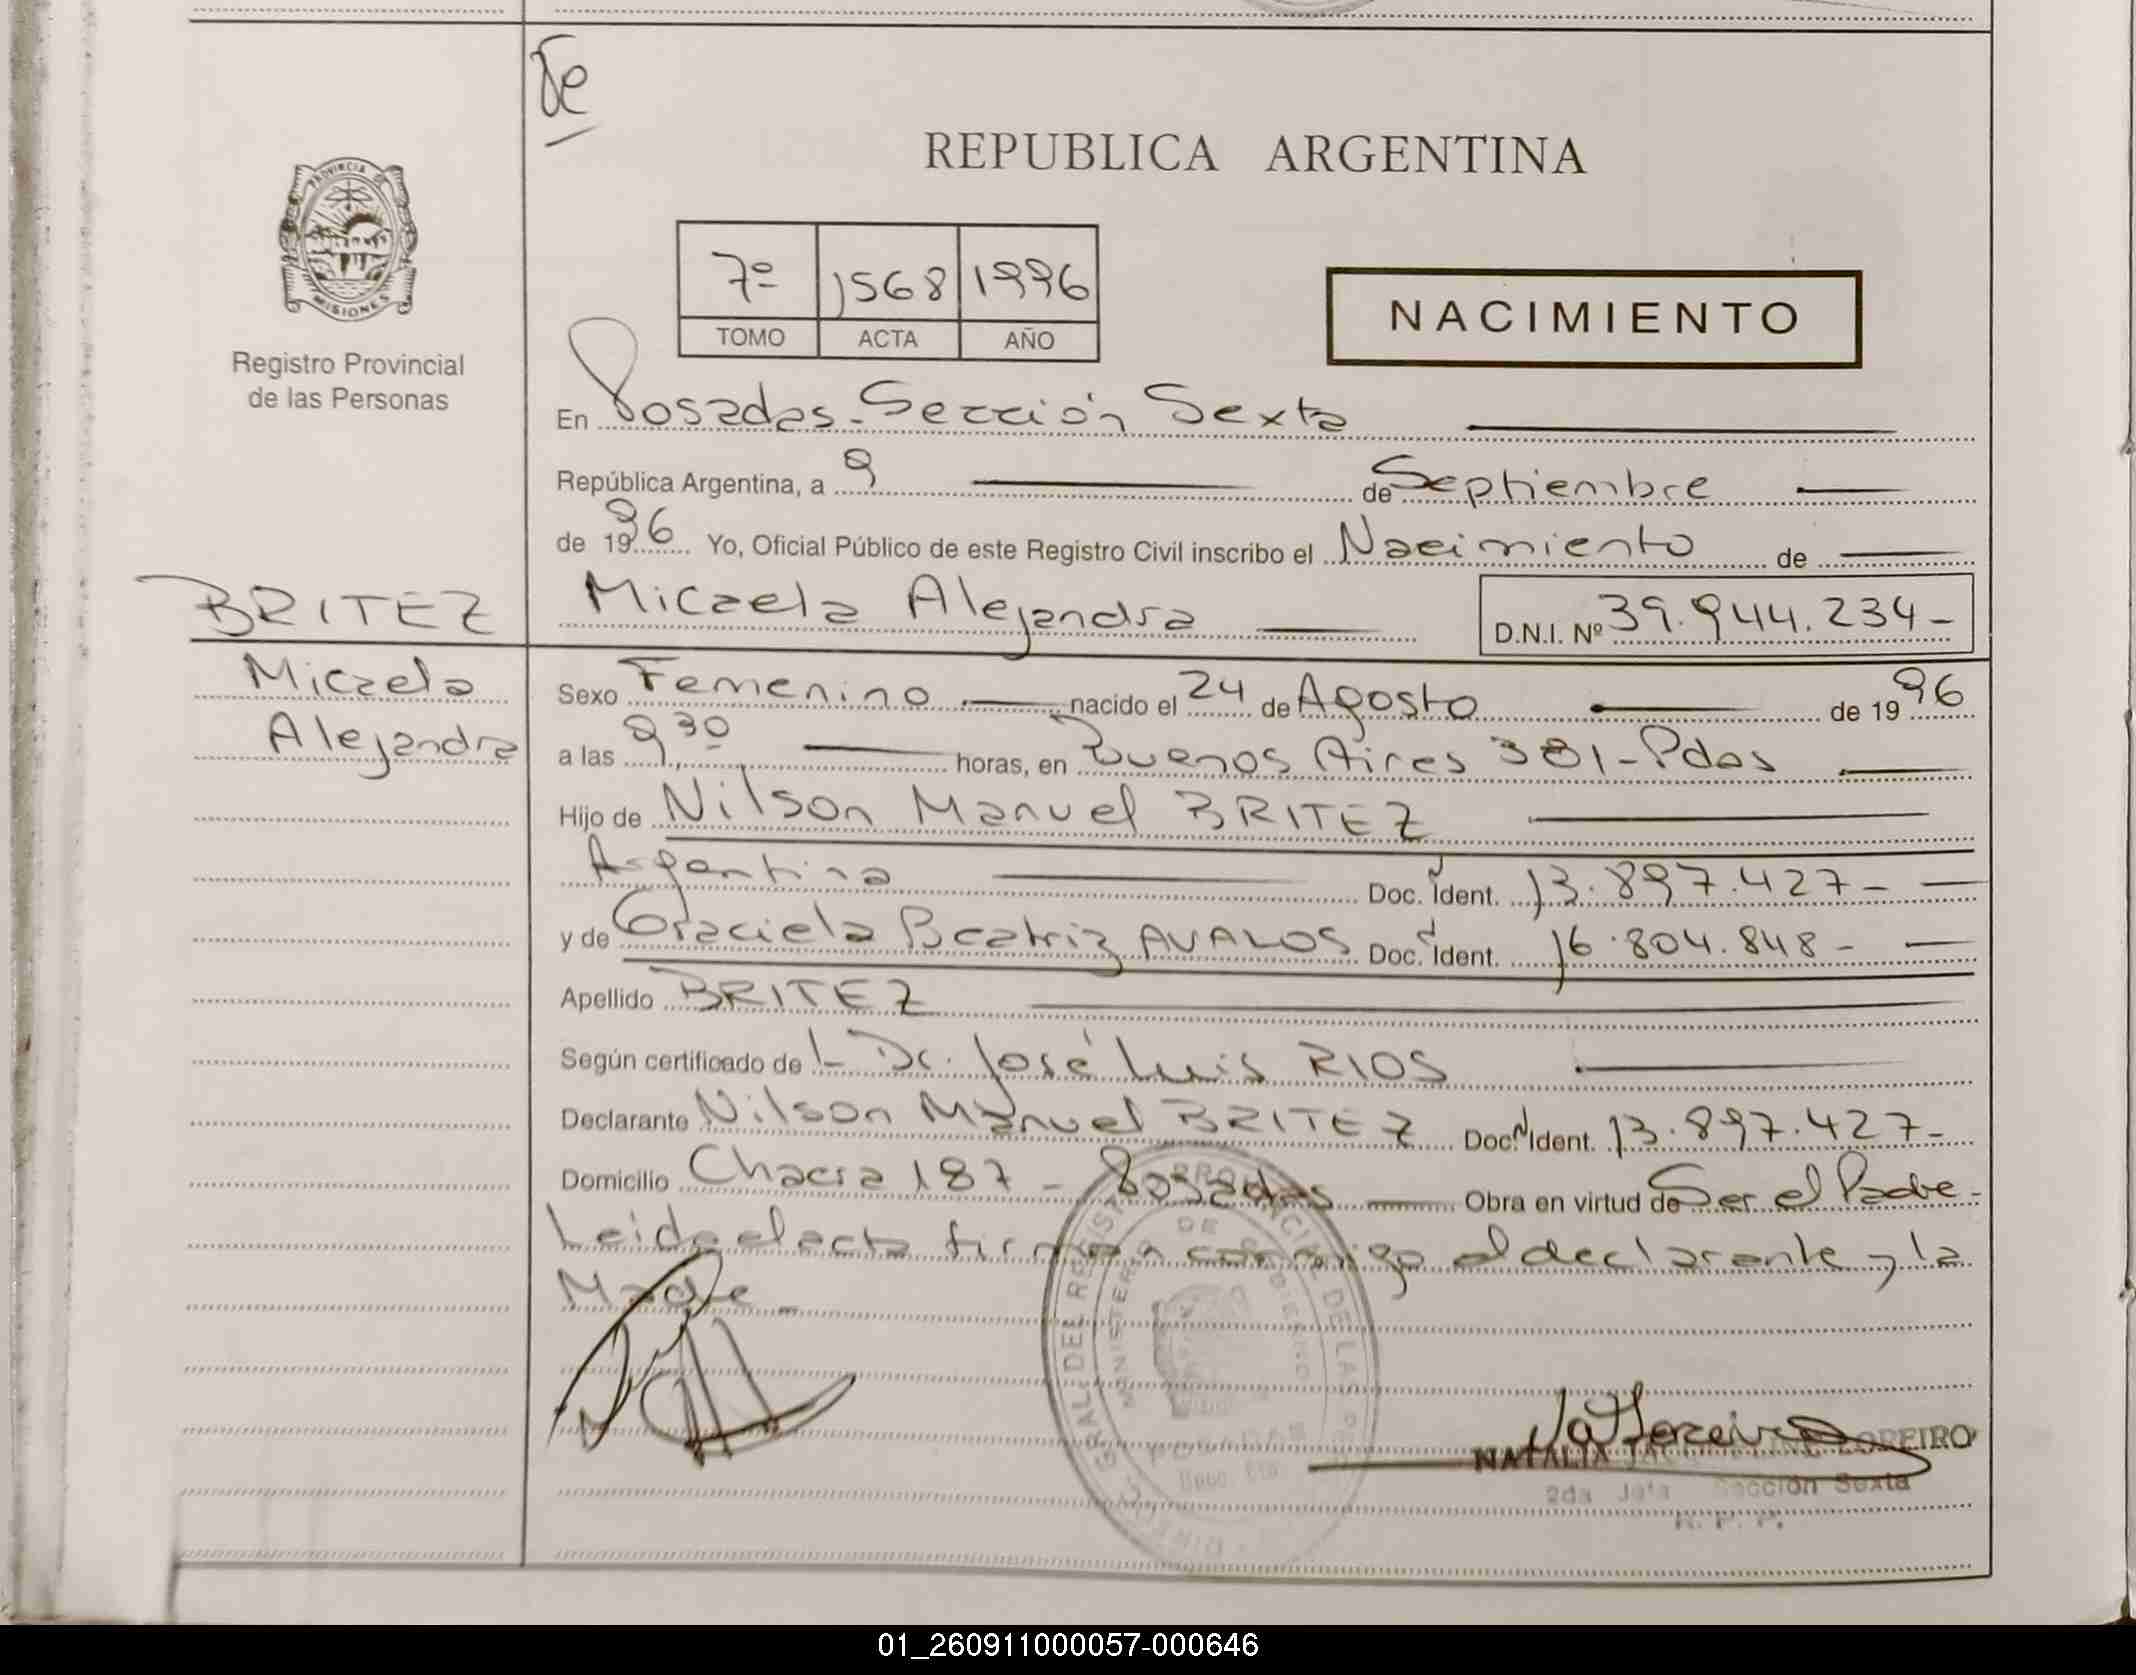 REPUBLICA ARGENTINA
PROVINCIA DE
MISIONES
Registro Provincial
de las Personas
7º 1568 1996
TOMO ACTA AÑO
NACIMIENTO
En Posadas - Sección Sexta
República Argentina, a 9 de Septiembre
de 1996 Yo, Oficial Público de este Registro Civil inscribo el Nacimiento de
BRITEZ
Micaela Alejandra
D.N.I. Nº 39.944.234-
Micaela
Alejandra
Sexo Femenino nacido el 24 de Agosto de 1996
a las 9,30 horas, en Buenos Aires 381 - Pdas
Hijo de Nilson Manuel BRITEZ
Argentina Doc. Ident. 13.897.427-
y de Graciela Beatriz AVALOS Doc. Ident. 16.804.848-
Apellido BRITEZ
Según certificado del Dr. José Luis RIOS
Declarante Nilson Manuel BRITEZ Doc. Ident. 13.897.427-
Domicilio Chacra 187 - Posadas Obra en virtud de Ser el Padre-
Leida el acta firman conmigo el declarante y la
Madre -
MINISTERIO DE GOBIERNO
POSADAS
NATALIA LOREIRO
2da Jefa Sección Sexta
R. P. P.
01_260911000057-000646